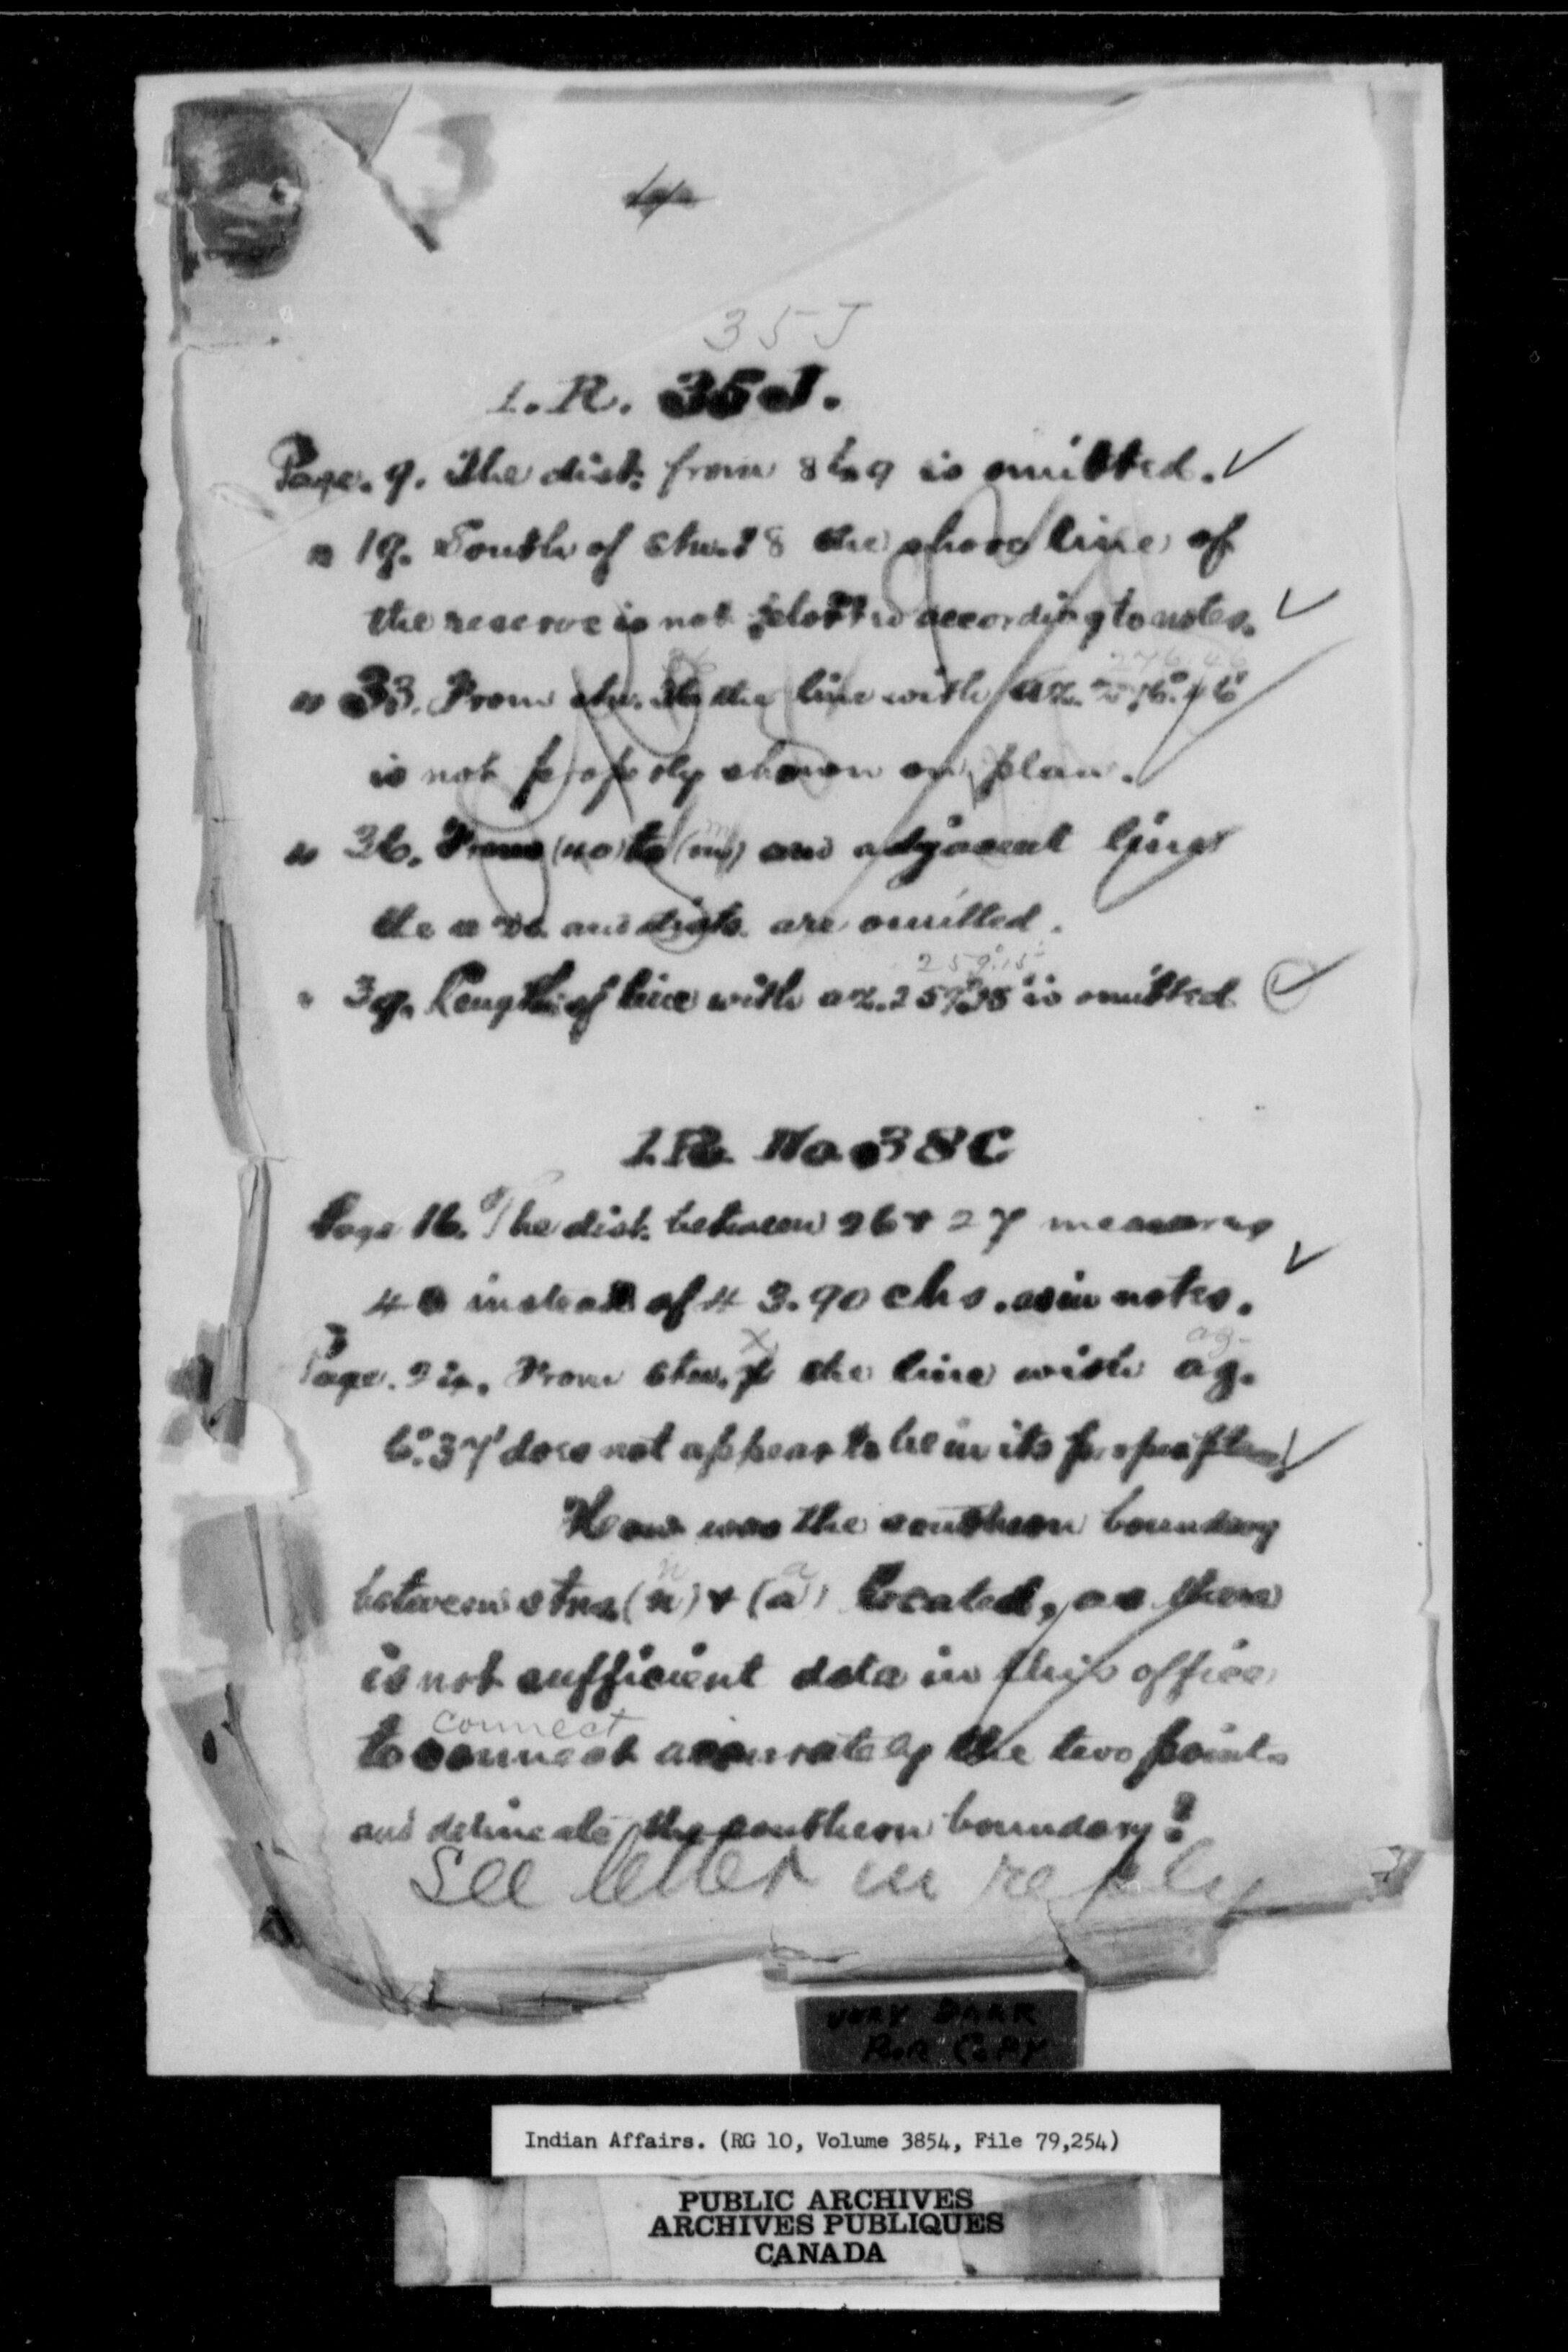 35J
I.R. 35J.
Page. 9. The dist. from 8 to 9 is omitted. ✓
" 19. South of Stn. 18 the shore line of
the reserve is not plotted according to notes. ✓
276.46
" 33. From stn. the line with az. 276°.46'
is not properly shown on plan.
" 36. From (no) to (m) and adjacent lines
the azs. and dists. are omitted.
259°.15'
" 39. Length of line with az. 259°.15' is omitted ✓
I.R. No. 38C
Page 16. The dist. between 26 & 27 measures
40 instead of 43.90 chs. as in notes. ✓
x ag-
Page. From Stn. x the line with ag.
6°.37' does not appear to be in its proper place ✓
How was the southern boundary
n a
between stns. (n) & (a) located, as there
is not sufficient data in this office
connect
to connect accurately the two points
and delineate the southern boundary?
See letter in reply
VERY DARK
POOR COPY
Indian Affairs. (RG 10, Volume 3854, File 79,254)
PUBLIC ARCHIVES
ARCHIVES PUBLIQUES
CANADA